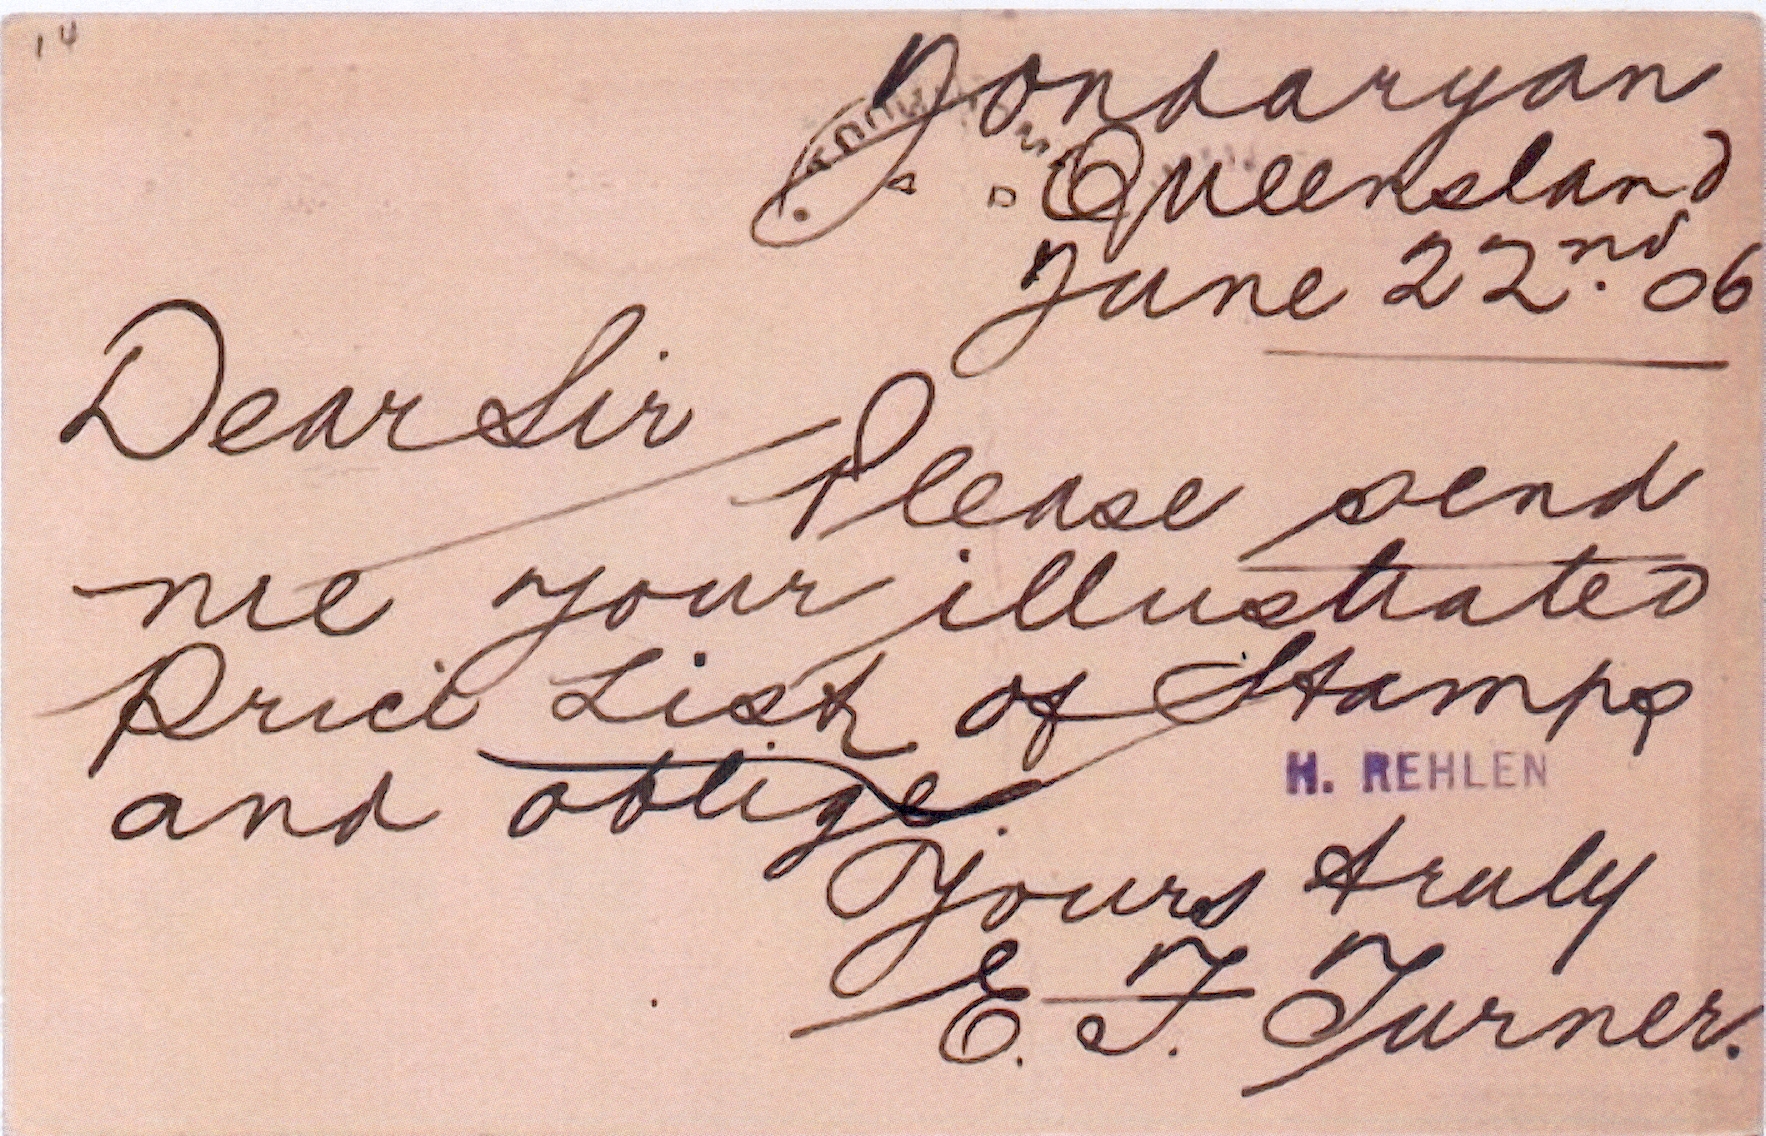 14
Jondaryan
Queensland
June 22nd. 06
Dear Sir
Please send
me your illustrated
Price List of Stamps
and oblige
H. REHLEN
Yours truly
E. F. Turner.